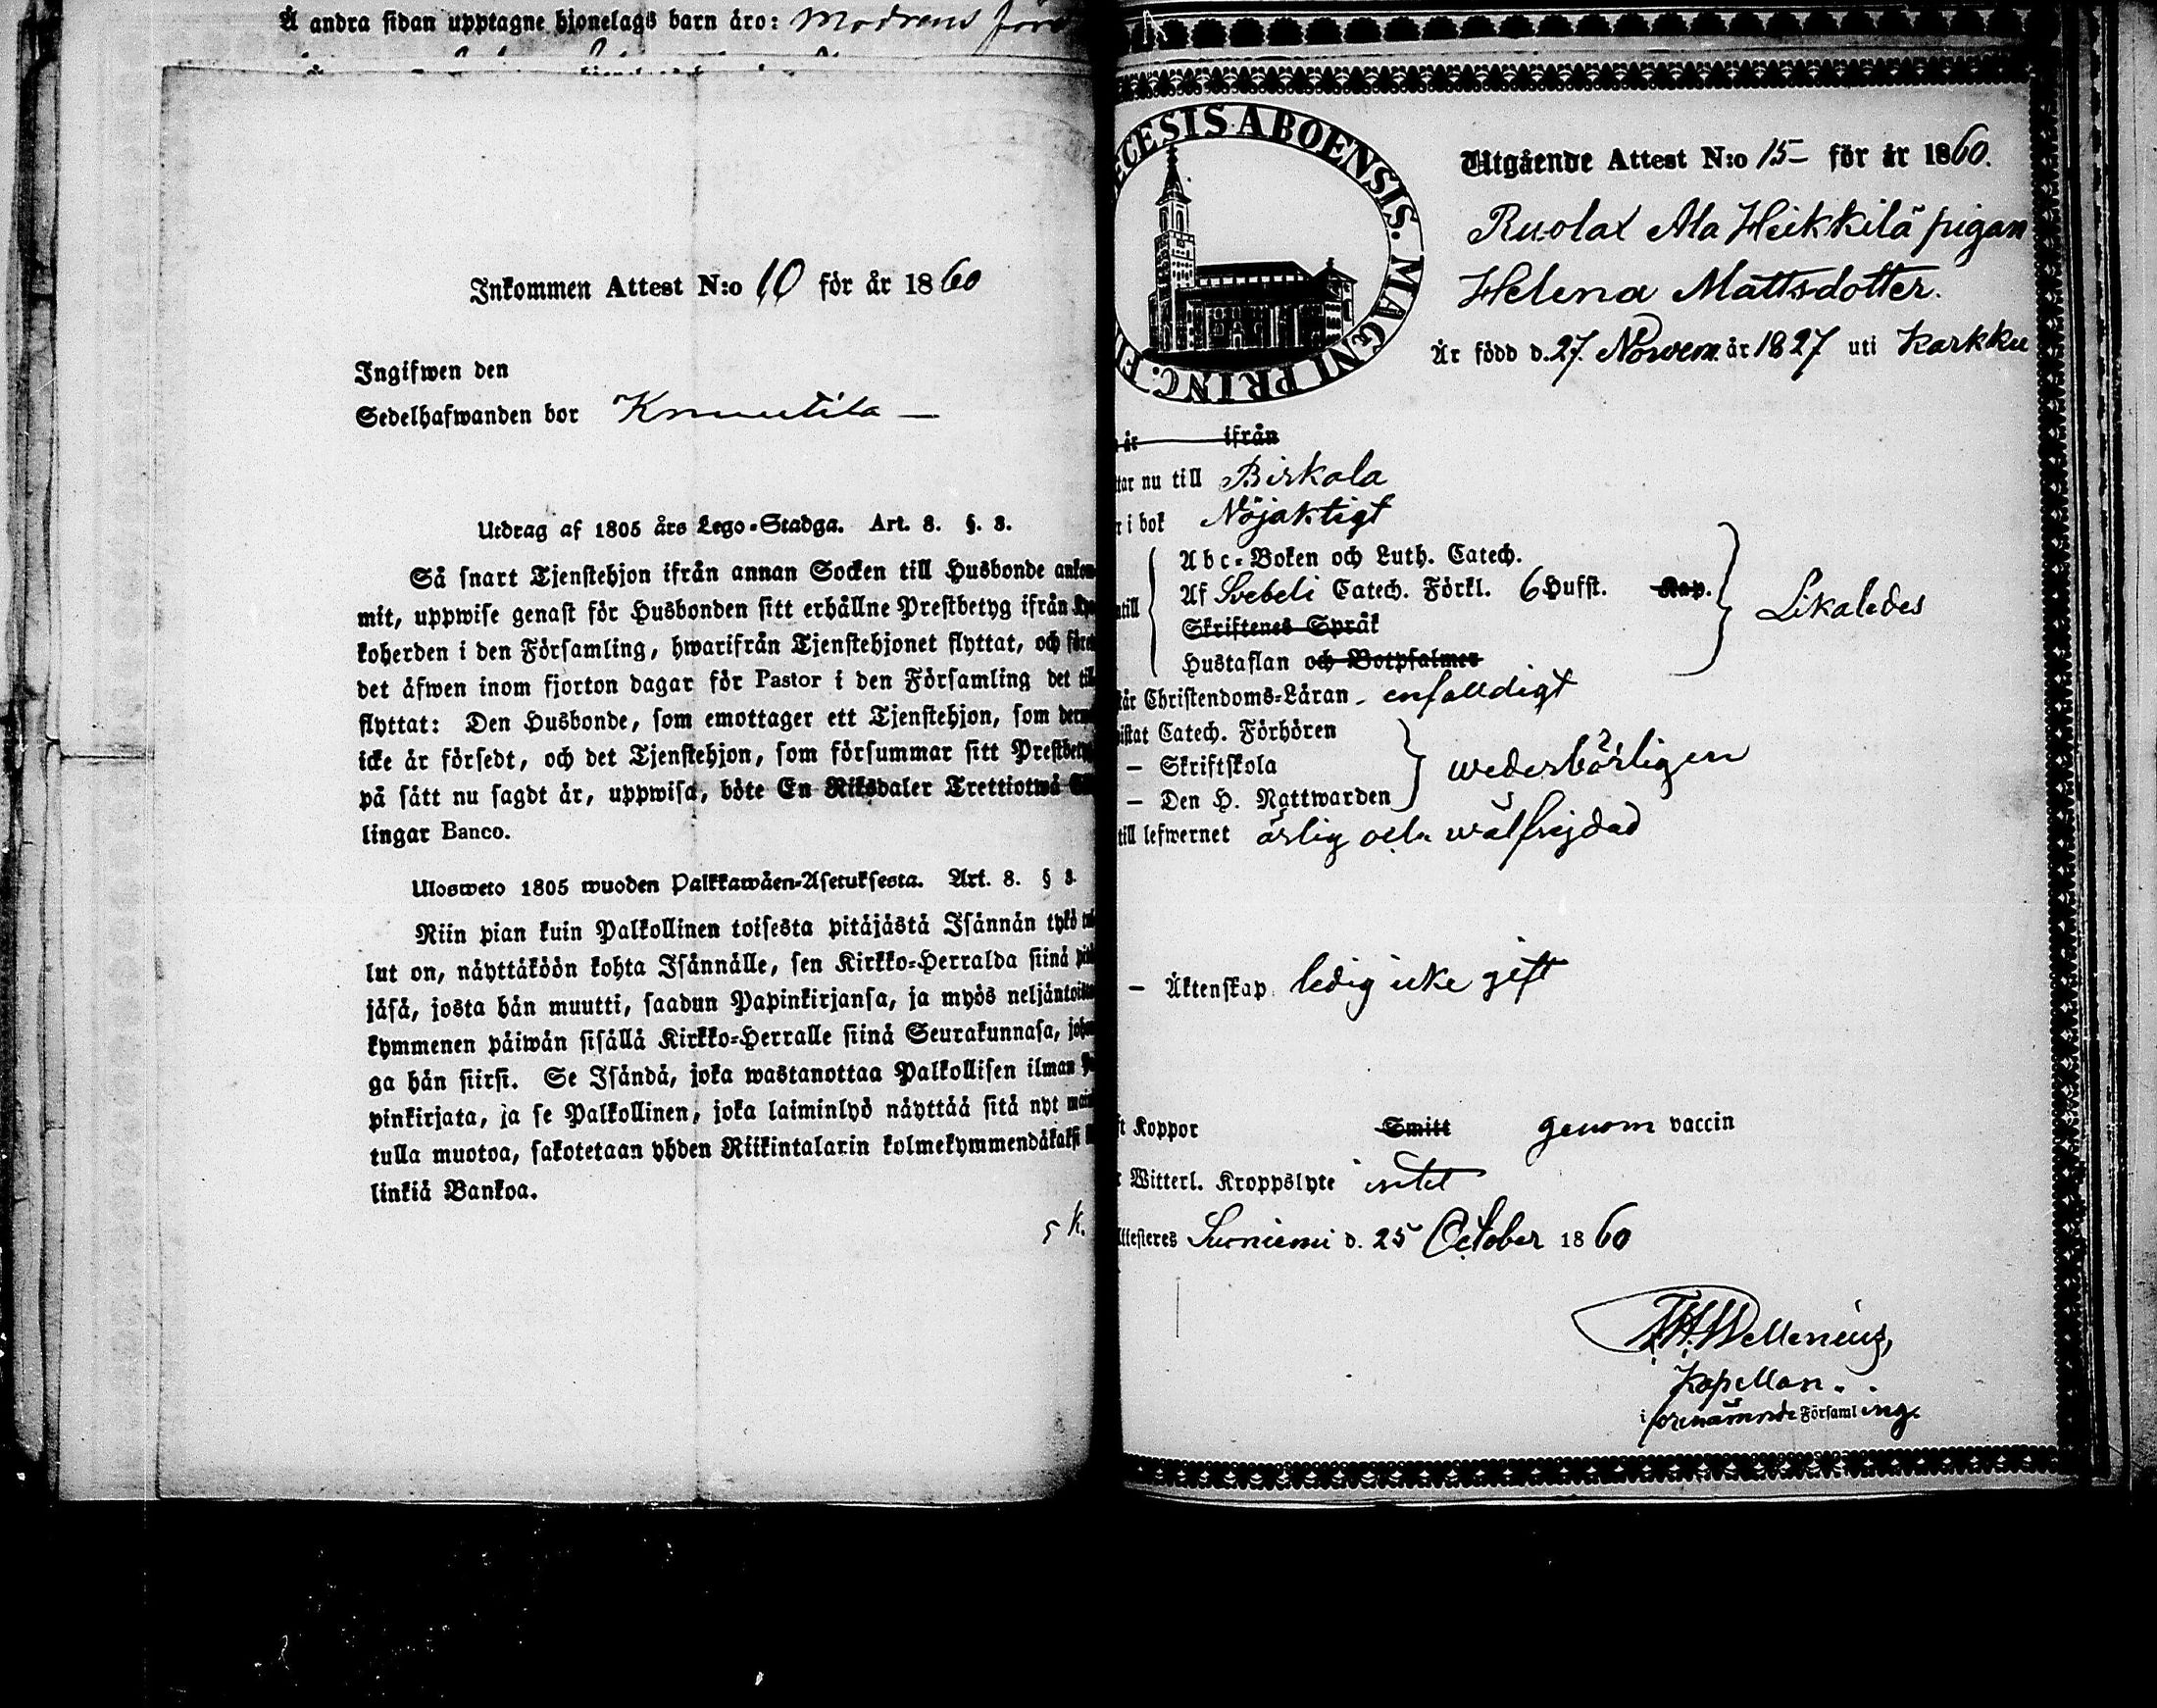 Å andra sidan upptagne hjonelags barn äro: modrens
Inkommen Attest N:o 10 för år 1860
Ingifwen den
Sedelhafwanden bor Knuutila —
Utdrag af 1805 års Lego-Stadga. Art. 8. §. 8.
Så snart Tjenstehjon ifrån annan Socken till Husbonde ankom-
mit, uppwise genast för Husbonden sitt erhållne Prestbetyg ifrån Kyr-
koherden i den Församling, hwarifrån Tjenstehjonet flyttat, och före
det äfwen inom fjorton dagar för Pastor i den Församling det till
flyttat: Den Husbonde, som emottager ett Tjenstehjon, som dermed
icke är försedt, och det Tjenstehjon, som försummar sitt Prestbetyg
på sätt nu sagdt är, uppwisa, böte En Riksdaler Trettiotwå
lingar Banco.
Ulosweto 1805 wuoden Palkkawäen-Asetuksesta. Art. 8. § 8.
Niin pian kuin Palkollinen toisesta pitäjästä Isännän tykö
lut on, näyttäköön kohta Isännälle, sen Kirkko-Herralda siinä
jäsä, josta hän muutti, saadun Papinkirjansa, ja myös neljäntoista
kymmenen päiwän sisällä Kirkko-Herralle siinä Seurakunnasa,
ga hän siirsi. Se Isändä, joka wastanottaa Palkollisen ilman
pinkirjata, ja se Palkollinen, joka laiminlyö näyttää sitä nyt
tulla muotoa, sakotetaan yhden Riikintalarin kolmekymmendäkaksi
linkiä Bankoa.
5 k.
ECESIS ABOENSIS. MAGNI PRINC.
Utgående Attest N:o 15 – för år 1860.
Ruolax Ala Heikkilä pigan
Helena Mattsdotter.
Är född d. 27 Novem. år 1827 uti Karkku
år ifrån
tar nu till Birkala
r i bok Nöjaktigt
ntill
Abc-Boken och Luth. Catech.
Af Svebeli Catech. Förkl. 6 Hufst. Kap.
Skriftenes Språk
Hustaflan och Botpsalmer
Likaledes
tår Christendoms-Läran – enfalldigt
istat Catech. Förhören
– Skriftskola
– Den H. Nattwarden
wederbörligen
till lefwernet ärlig och wälfrejdad
– Äktenskap ledig icke gift
ft Koppor Smitt genom vaccin
r Witterl. Kroppslyte intet
ttesteres Suoniemi d. 25 October 1860
Wellenius,
Kapellan.
i förenämnde Församling.